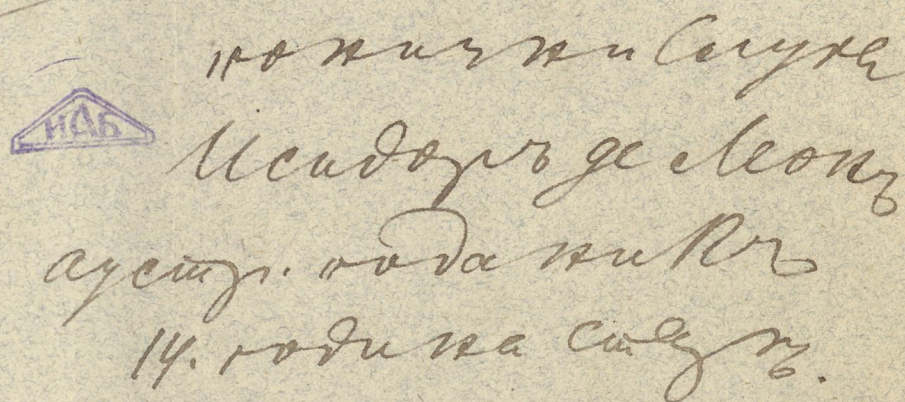 покични Слуга
НАБ
Исидоръ де Леонъ
аустр. поданикъ
14. година старъ.